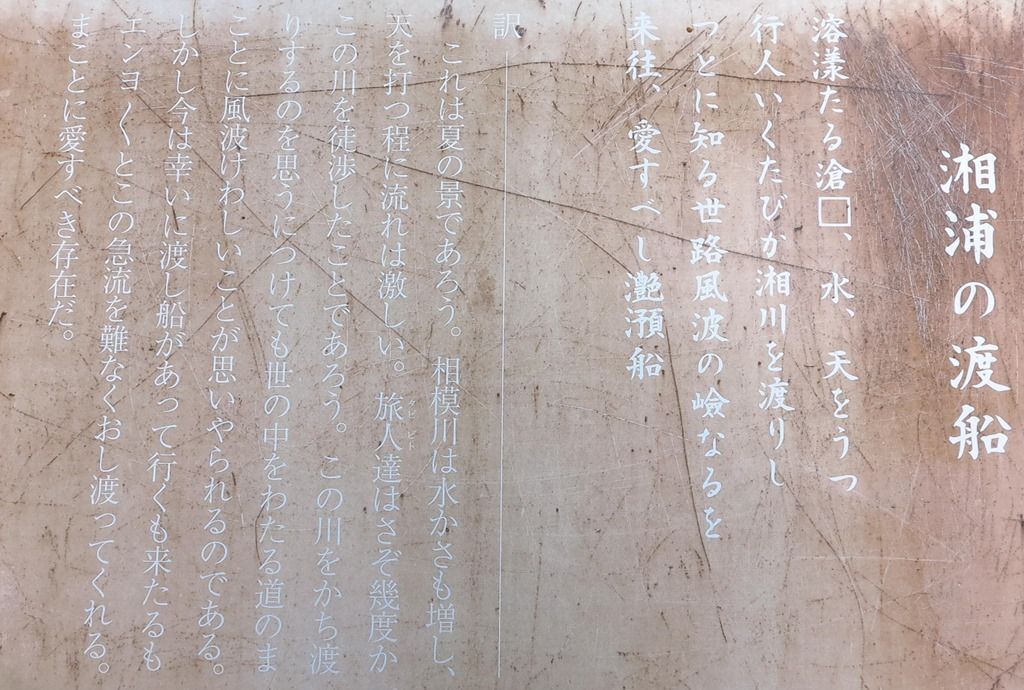 湘浦の渡船
溶漾たる滄□、水、天をうつ
行人いくたびか湘川を渡りし
つとに知る世路風波の嶮なるを
来往、愛すべし灔澦船
訳
これは夏の景であろう。相模川は水かさも増し、
天を打つ程に流れは激しい。旅人達はさぞ幾度か
タビビト
この川を徒渉したことであろう。この川をかち渡
りするのを思うにつけても世の中をわたる道のま
ことに風波けわしいことが思いやられるのである。
しかし今は幸いに渡し船があって行くも来たるも
エンヨ〳〵とこの急流を難なくおし渡ってくれる。
まことに愛すべき存在だ。